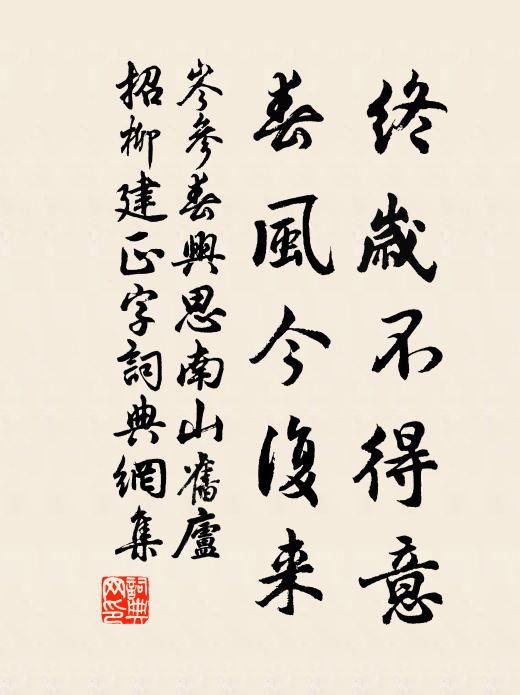 終歲不得意
春風今復来
岑參春興思南山舊廬
招柳建正字詞典網集
詞典
网印